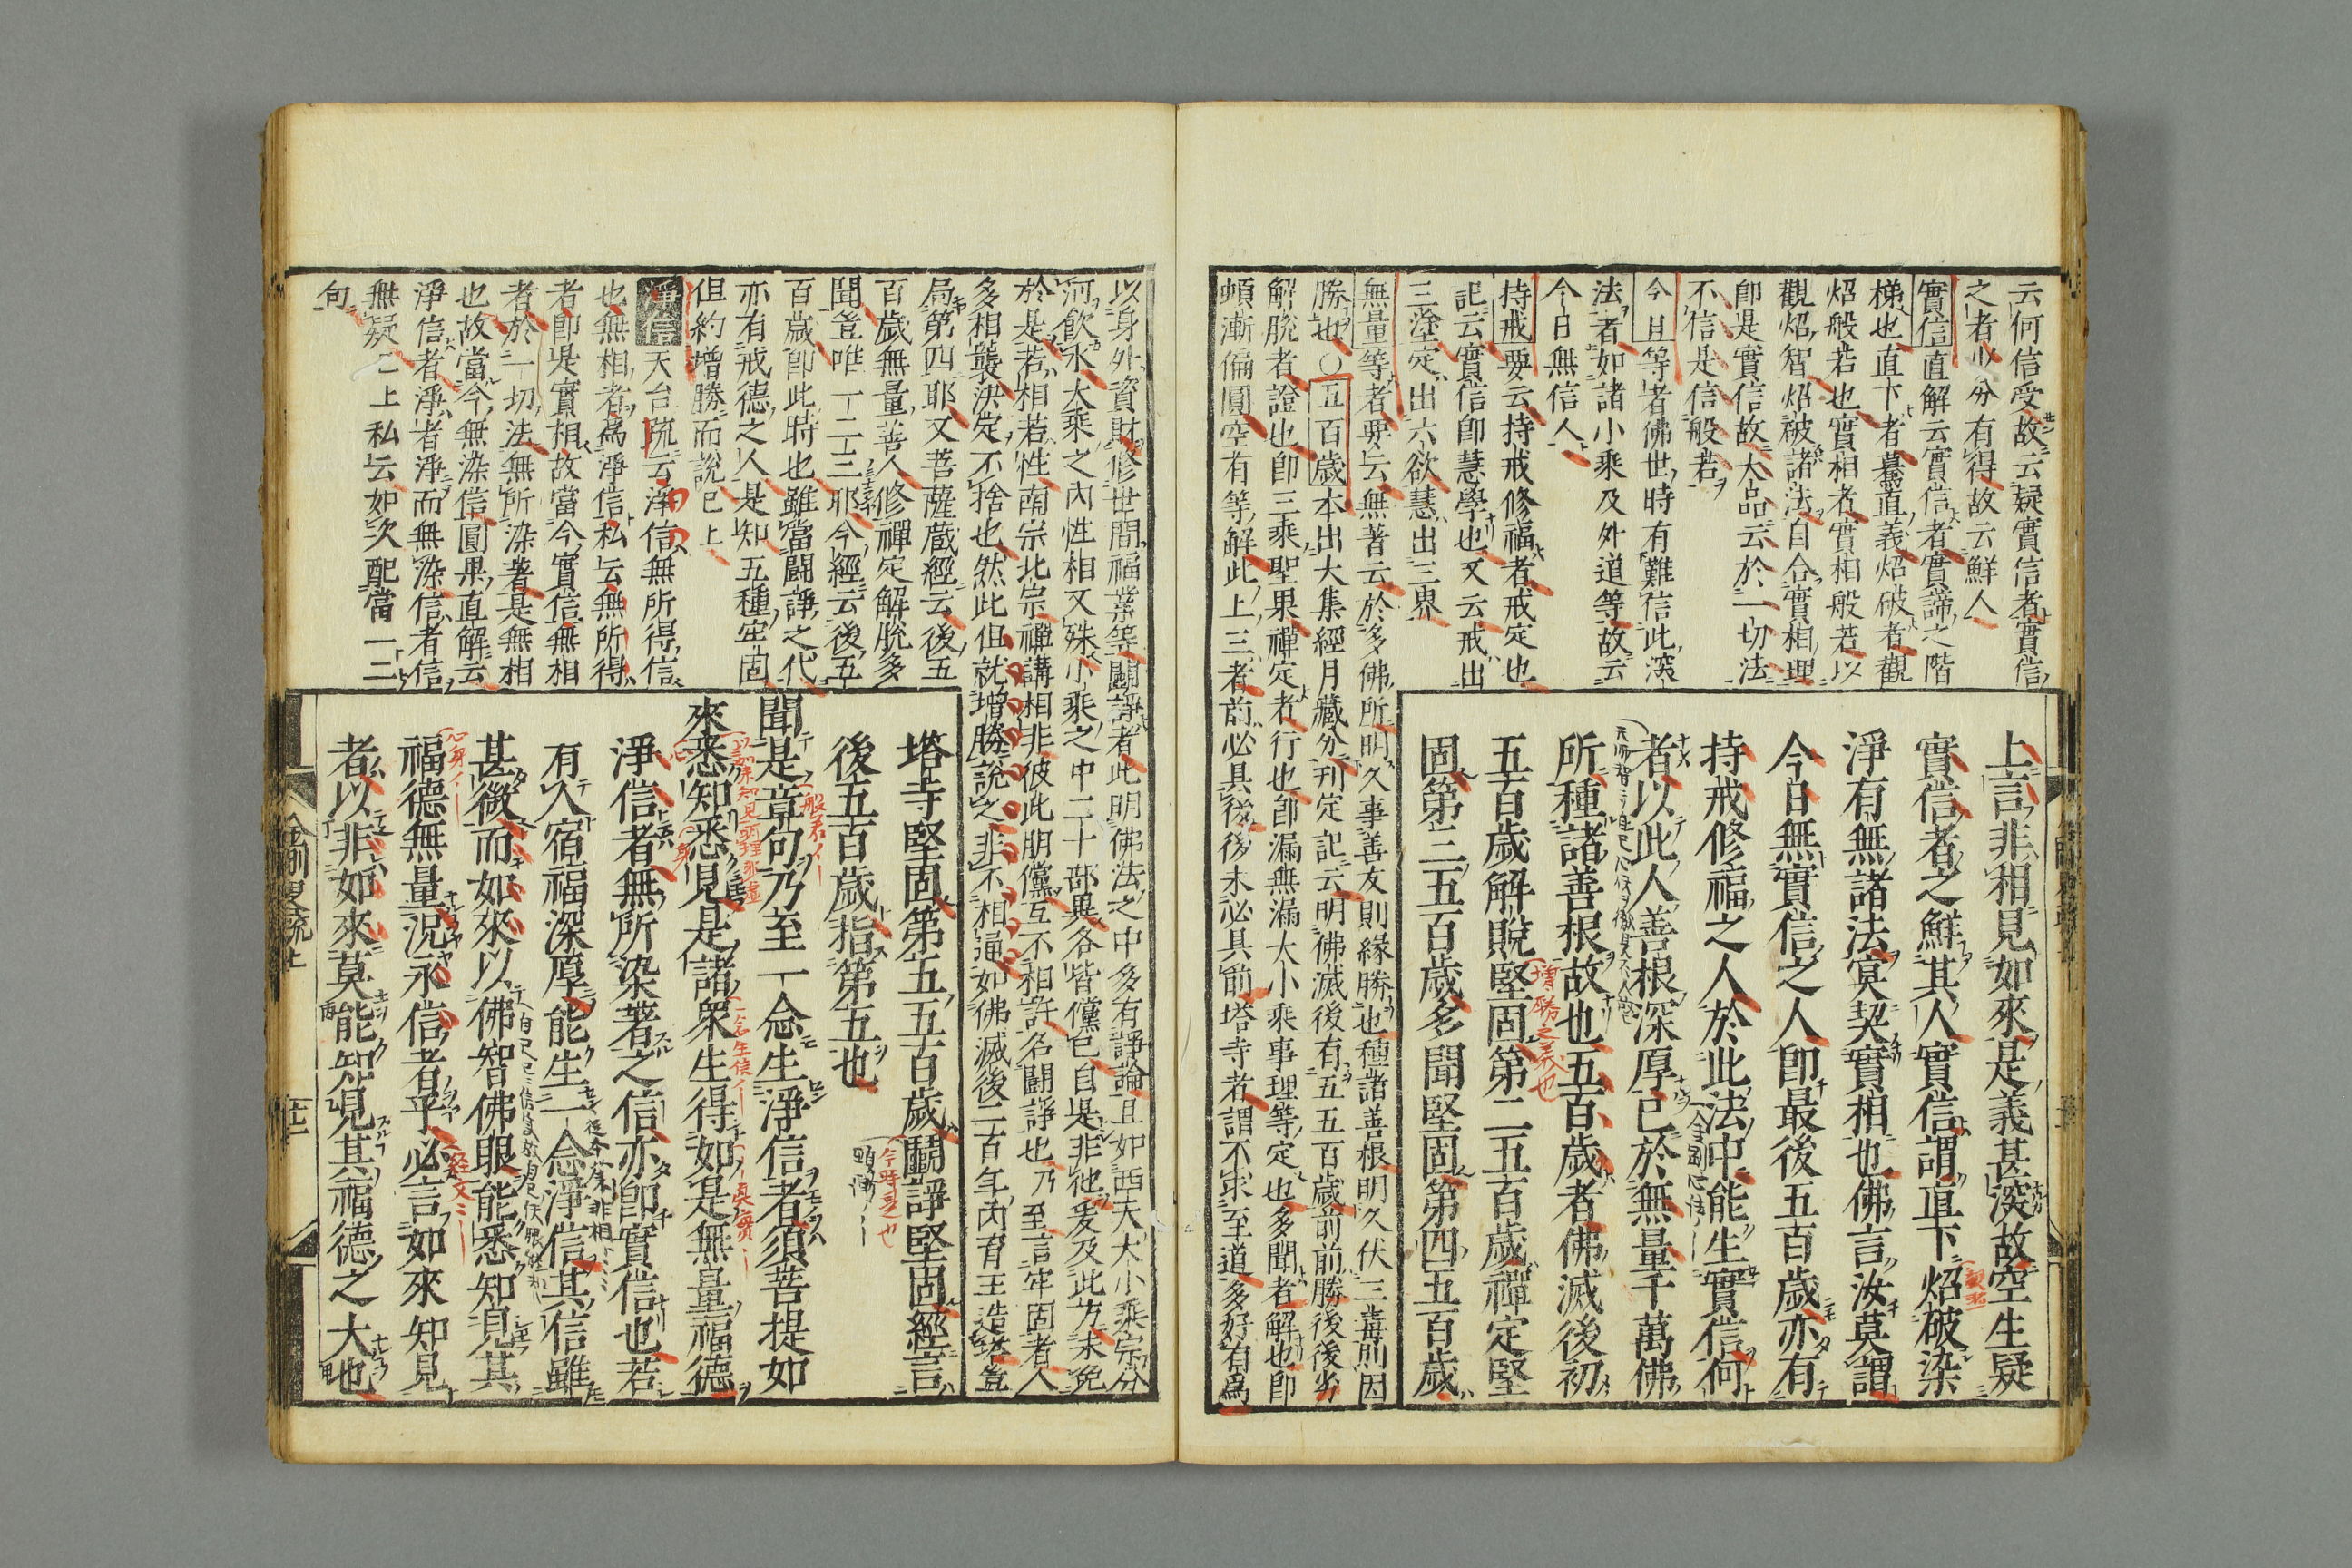 云何信受故云疑實信者實信
之者必分有得故云鮮人
實信直解云實信者實諦之階
梯也直下者驀直義炤破者觀
炤般若也實相者實相般若以
觀炤智炤破諸法自合實相理
即是實信故大品云於一切法
不信是信般若
今且等者佛世時有難信此深
法者如諸小乘及外道等故云
今日無信人
持戒要云持戒修福者戒定也
記云實信即慧學也又云戒出
三塗定出六欲慧出三界
無量等者要云無著云於多佛所明久事善友則緣勝也種諸善根明久伏三毒則因
勝也○五百歲本出大集經月藏分刊定記云明佛滅後有五五百歲前前勝後後劣
解脫者證也即三乘聖果禪定者行也即漏無漏大小乘事理等定也多聞者解也即
頓漸偏圓空有等解此上三者前必具後後未必具前塔寺者謂不求至道多好有爲
上言非相見如來是義甚深故空生疑
實信者之鮮其人實信謂直下炤破染
淨有無諸法冥契實相也佛言汝莫謂
今日無實信之人即最後五百歲亦有
持戒修福之人於此法中能生實信何
者以此人善根深厚已於無量千萬佛
所種諸善根故也五百歲者佛滅後初
五百歲解脫堅固第二五百歲禪定堅
固第三五百歲多聞堅固第四五百歲
以身外資財修世間福業等鬪諍者此明佛法之中多有諍論且如西天大小乘宗分
河飮水大乘之內性相又殊小乘之中二十部異各皆儻己自是非他爰及此方未免
於是若相若性南宗北宗禪講相非彼此朋儻互不相許名鬪諍也乃至言牢固者人
多相襲決定不捨也然此但就增勝說之非不相通如佛滅後二百年內育王造塔豈
局第四耶又菩薩藏經云後五
百歲無量善人修禪定解脫多
聞豈唯一二三耶今經云後五
百歲即此時也雖當鬪諍之代
亦有戒德之人是知五種牢固
但約增勝而說已上
淨信天台疏云淨信無所得信
也無相者爲淨信私云無所得
者即是實相故當今實信無相
者於一切法無所染著是無相
也故當今無染信圓果直解云
淨信者淨者淨而無染信者信
無疑已上私云如次配當一二
句
塔寺堅固第五五百歲鬪諍堅固經言
後五百歲指第五也
聞是章句乃至一念生淨信者須菩提如
來悉知悉見是諸衆生得如是無量福德
淨信者無所染著之信亦即實信也若
有人宿福深厚能生一念淨信其信雖
甚微而如來以佛智佛眼能悉知見其
福德無量況永信者乎必言如來知見
者以非如來莫能知見其福德之大也